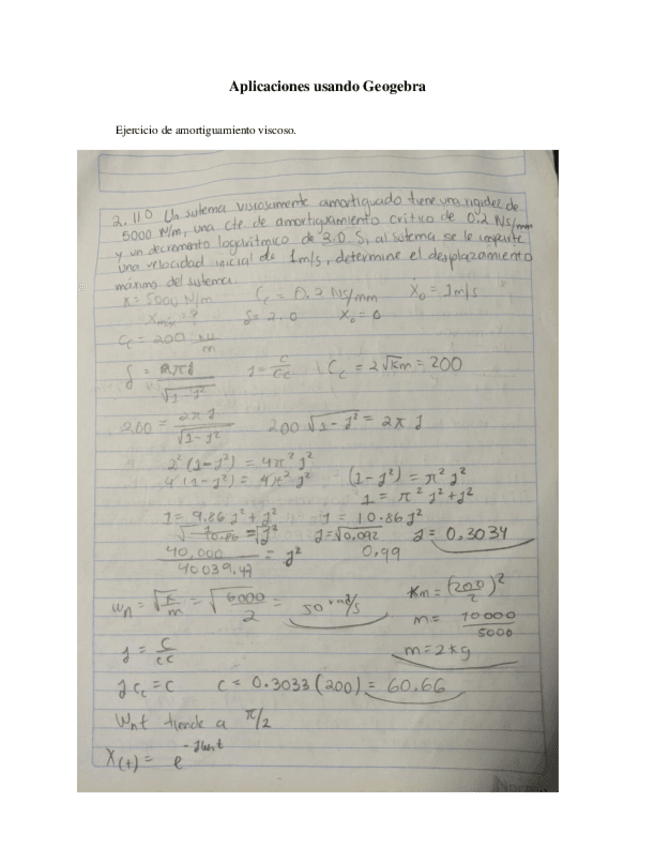 Aplicaciones usando Geogebra
Ejercicio de amortiguamiento viscoso.
2.110 Un sistema viscosamente amortiguado tiene una rigidez de
5000 N/m, una cte de amortiguamiento crítico de 0.2 Ns/mm
y un decremento logarítmico de 2.0 Si al sistema se le imparte
una velocidad inicial de 1m/s, determine el desplazamiento
máximo del sistema.
K = 5000 N/m Cc = 0.2 Ns/mm Ẋo = 1m/s
Xmáx = ? δ = 2.0 Xo = 0
Cc = 200
m
δ = 2πζ / √1-ζ² ζ = C/Cc Cc = 2√Km = 200
200 = 2πζ / √1-ζ² 200 √1-ζ² = 2πζ
2² (1-ζ²) = 4π² ζ²
4 (1-ζ²) = 4π² ζ² (1-ζ²) = π² ζ²
1 = π² ζ² + ζ²
1 = 9.86 ζ² + ζ² 1 = 10.86 ζ²
√1/10.86 = ζ² ζ = √0.092 ζ = 0.3034
40,000 / 40039.47 = ζ² 0.99
Wn = √K/m = √5000/2 = 50 rad/s Km = (200/2)²
m = 10000/5000
m = 2kg
ζ = C/Cc
ζ Cc = C C = 0.3033 (200) = 60.66
Wnt tiende a π/2
X(t) = e^-ζWnt